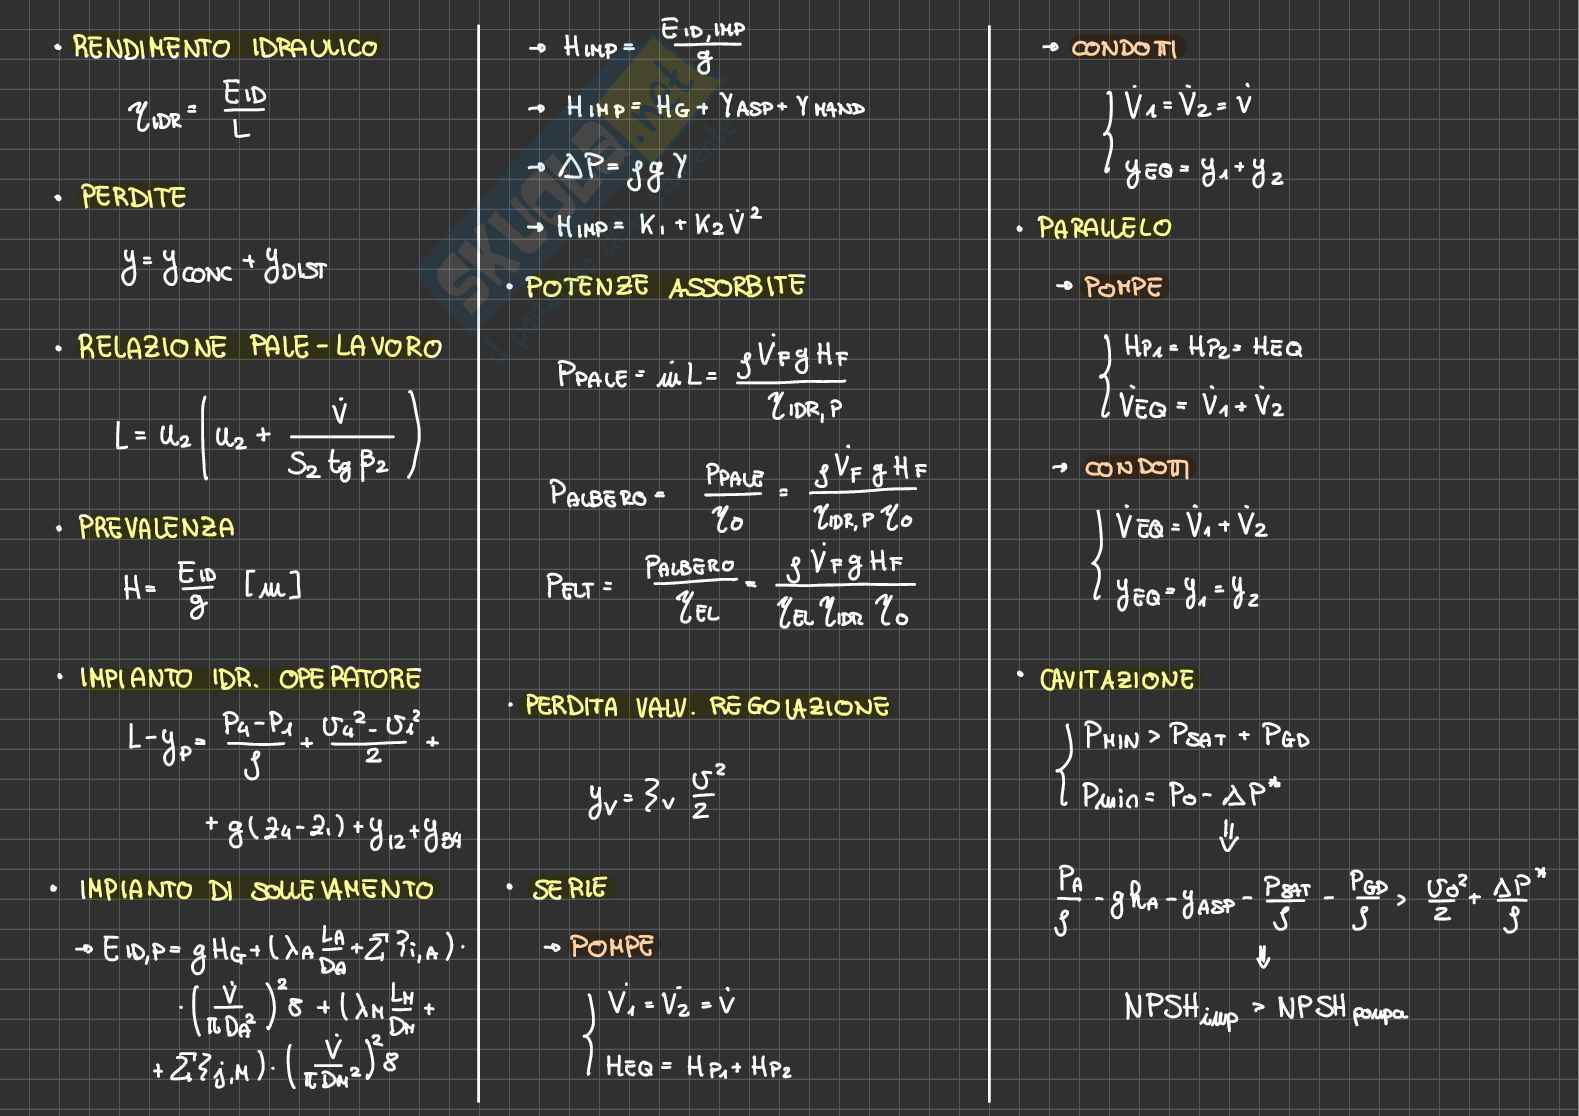 • RENDIMENTO IDRAULICO
η_IDR = E_ID / L
• PERDITE
y = y_CONC + y_DIST
• RELAZIONE PALE-LAVORO
L = u₂ (u₂ + V̇ / (S₂ tg β₂))
• PREVALENZA
H = E_ID / g [m]
• IMPIANTO IDR. OPERATORE
L - y_P = (P₄ - P₁) / ρ + (v₄² - v₁²) / 2 +
+ g (z₄ - z₁) + y₁₂ + y₃₄
• IMPIANTO DI SOLLEVAMENTO
→ E_ID,P = g H_G + (λ_A L_A / D_A + Σ ξ_i,A) ·
· (V̇ / (π D_A²))² 8 + (λ_M L_M / D_M +
+ Σ ξ_j,M) · (V̇ / (π D_M²))² 8
→ H_IMP = E_ID,IMP / g
→ H_IMP = H_G + Y_ASP + Y_MAND
→ ΔP = ρ g Y
→ H_IMP = K₁ + K₂ V̇²
• POTENZE ASSORBITE
P_PALE = ṁ L = ρ V̇_F g H_F / η_IDR,P
P_ALBERO = P_PALE / η_O = ρ V̇_F g H_F / (η_IDR,P η_O)
P_ELT = P_ALBERO / η_EL = ρ V̇_F g H_F / (η_EL η_IDR η_O)
• PERDITA VALV. REGOLAZIONE
y_V = ξ_V v² / 2
• SERIE
→ POMPE
{ V̇₁ = V̇₂ = V̇
H_EQ = H_P1 + H_P2
→ CONDOTTI
{ V̇₁ = V̇₂ = V̇
y_EQ = y₁ + y₂
• PARALLELO
→ POMPE
{ H_P1 = H_P2 = H_EQ
V̇_EQ = V̇₁ + V̇₂
→ CONDOTTI
{ V̇_EQ = V̇₁ + V̇₂
y_EQ = y₁ = y₂
• CAVITAZIONE
{ P_MIN > P_SAT + P_GD
P_min = P_O - ΔP*
⇓
P_A / ρ - g h_A - y_ASP - P_SAT / ρ - P_GD / ρ > v_O² / 2 + ΔP* / ρ
⇓
NPSH_imp > NPSH_pompa
SKUOLA.net